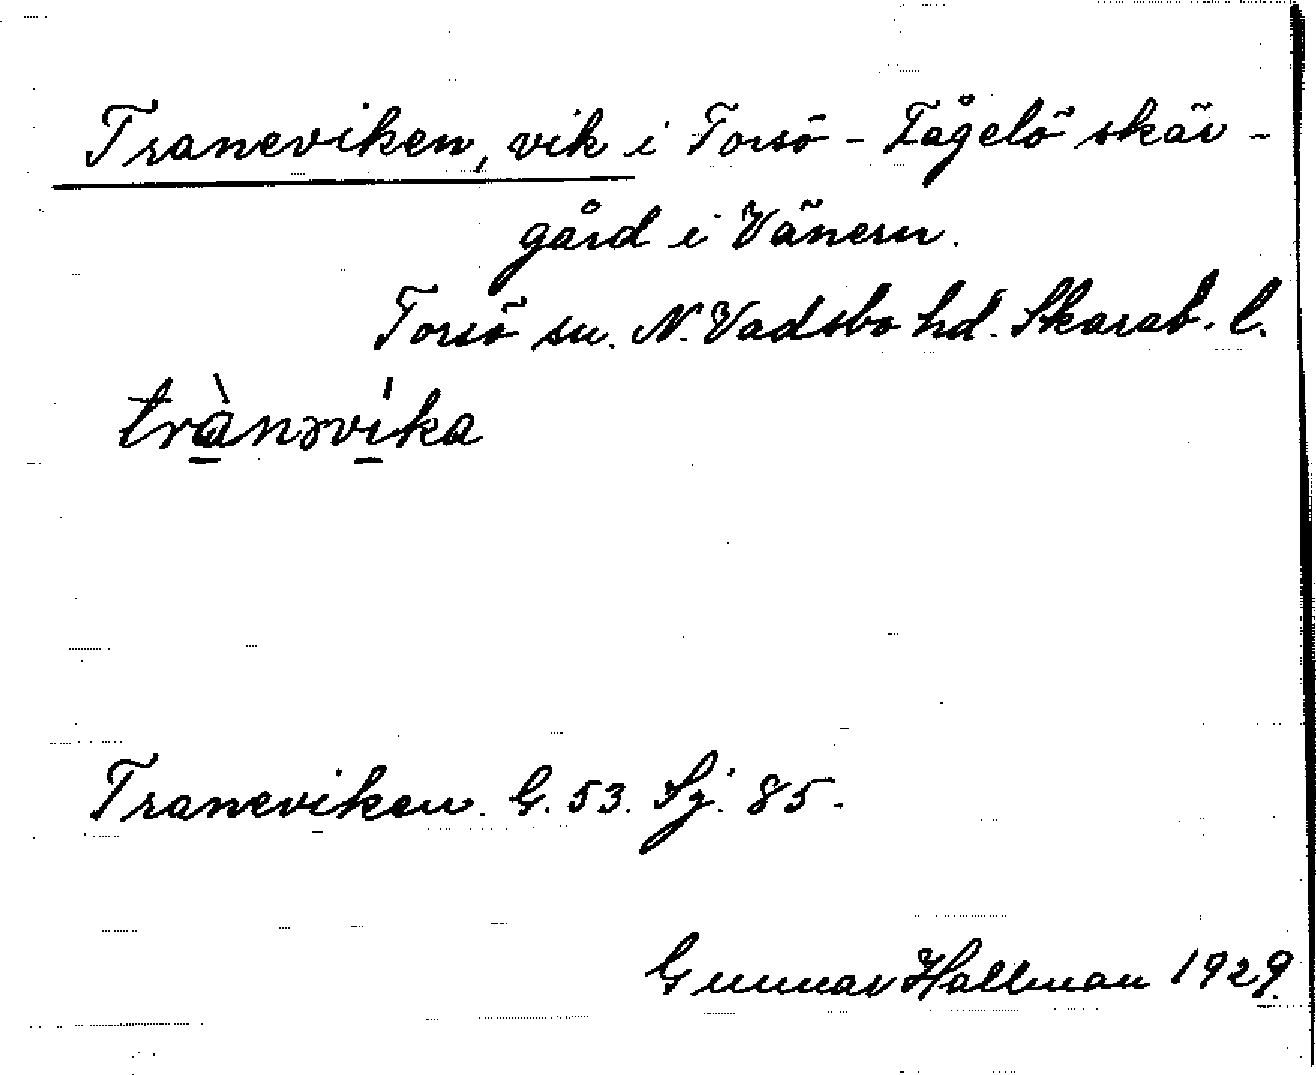 Traneviken, vik i Torsö - Fågelö skär-
gård i Vänern.
Torsö sn. N. Vadsbo hd. Skarab. l.
trànǝvíka
Traneviken. G. 53. Sj. 85.
Gunnar Hallman 1929